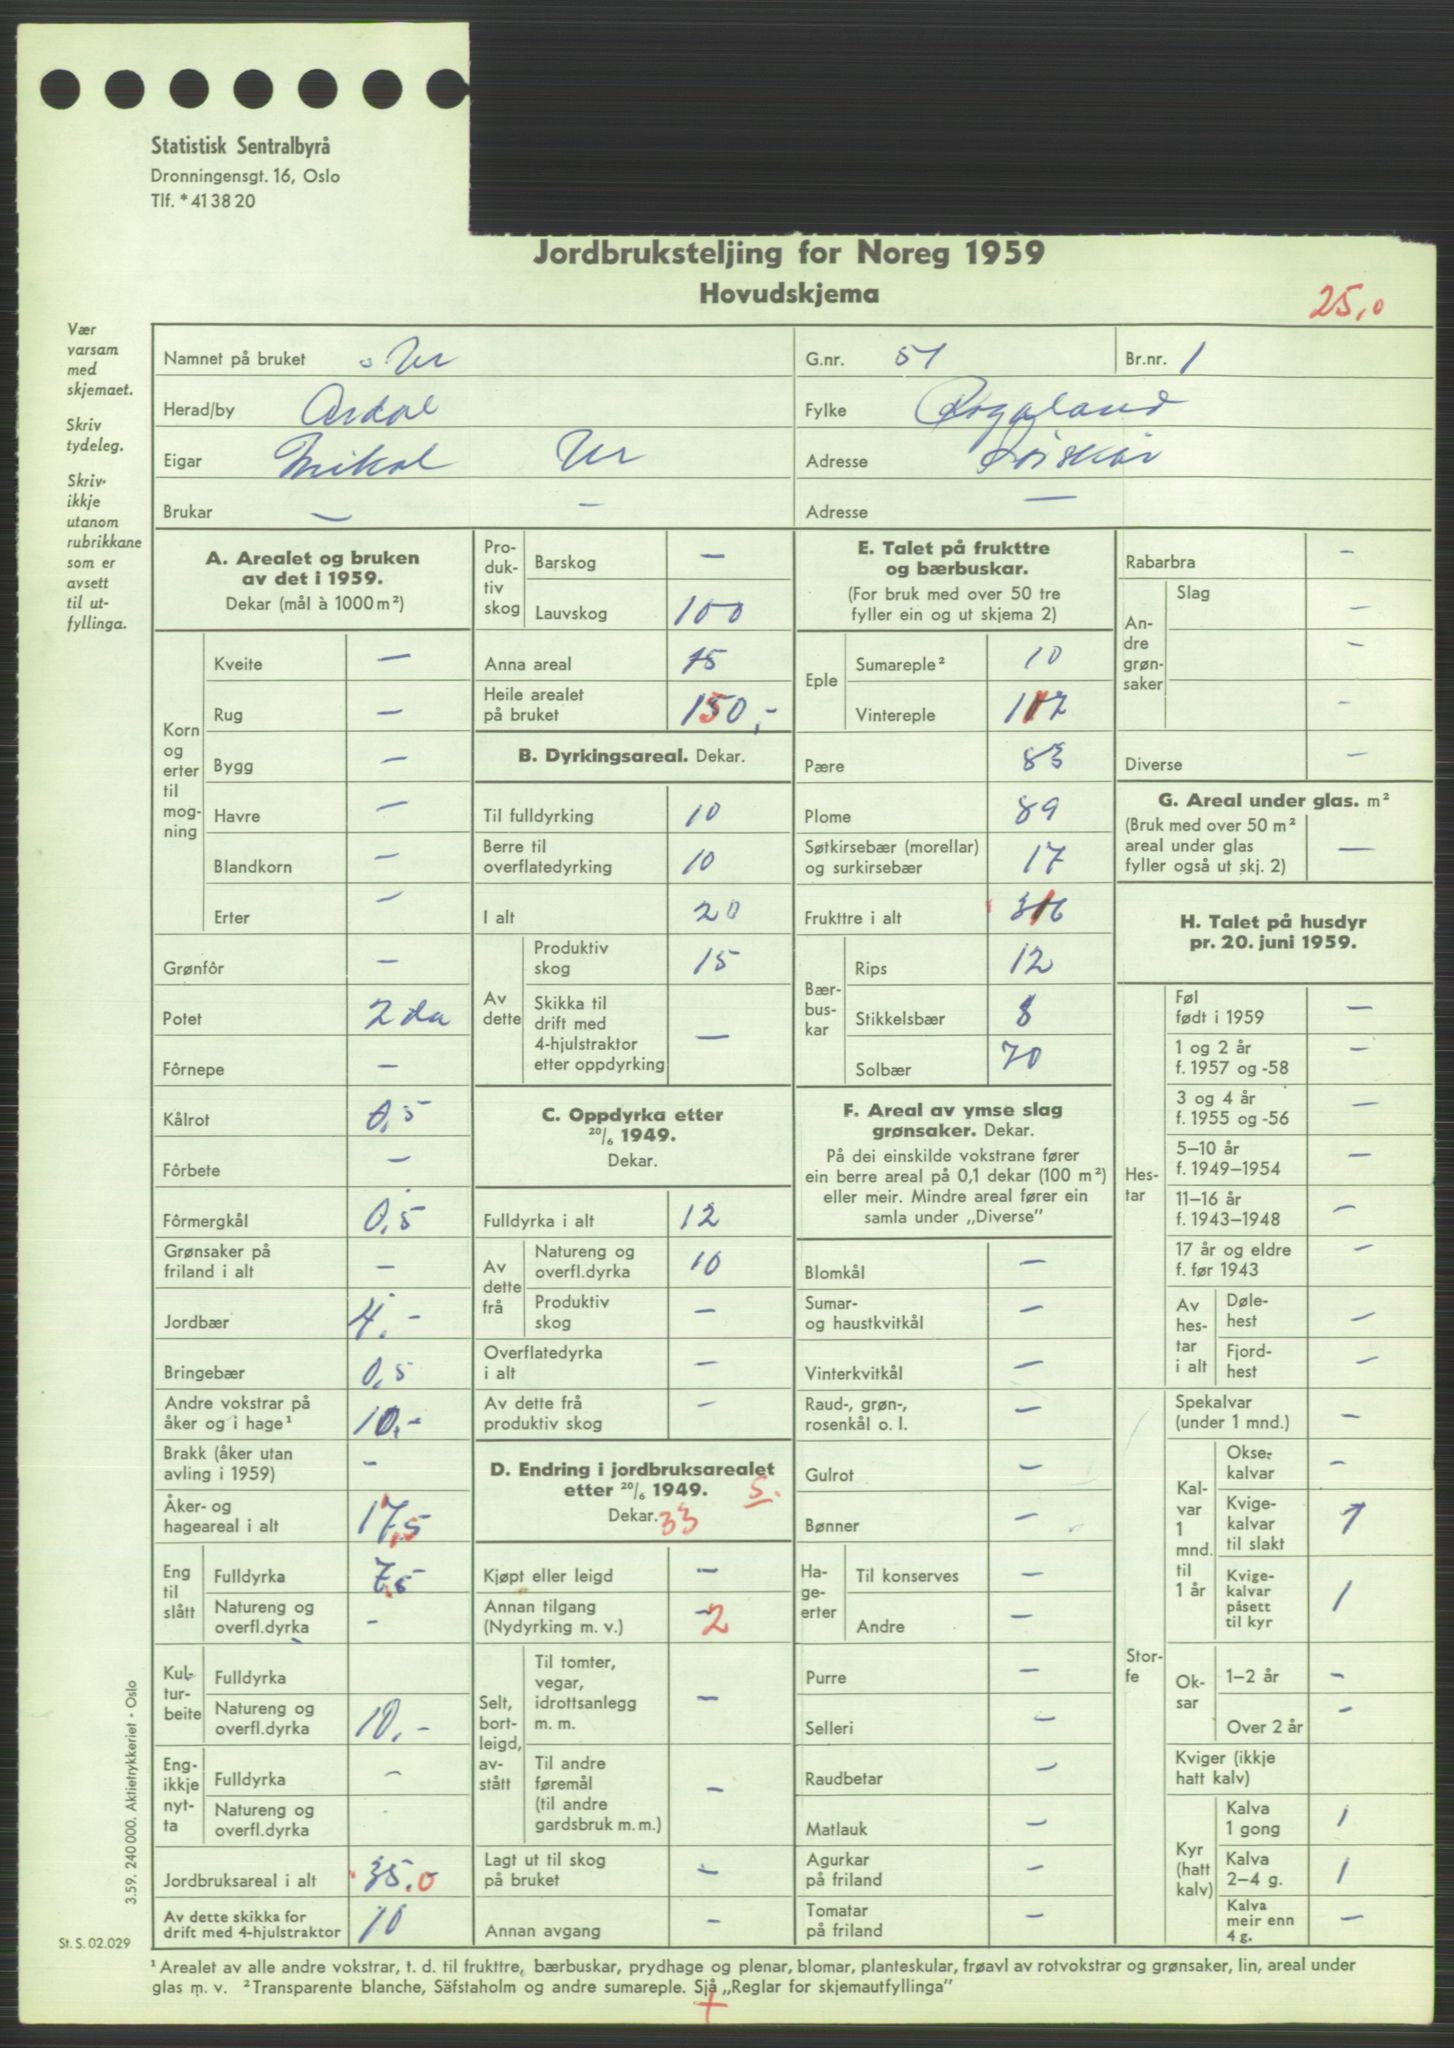 Statistisk Sentralbyrå
Dronningensgt. 16, Oslo
Tlf. * 41 38 20
Jordbruksteljing for Noreg 1959
Hovudskjema
25,0
Vær
varsam
med
skjemaet.
Skriv
tydeleg.
Skriv
ikkje
utanom
rubrikkane
som er
avsett
til ut-
fyllinga.
Namnet på bruket Ur G.nr. 51 Br.nr. 1
Herad/by Årdal Fylke Rogaland
Eigar Mikal Ur Adresse
Brukar — — Adresse —
A. Arealet og bruken
av det i 1959.
Dekar (mål à 1000 m²)
Korn og erter til mog-ning
Kveite —
Rug —
Bygg —
Havre —
Blandkorn —
Erter —
Grønfôr —
Potet 2 da
Fôrnepe —
Kålrot 0,5
Fôrbete —
Fôrmergkål 0,5
Grønsaker på
friland i alt —
Jordbær 4,-
Bringebær 0,5
Andre vokstrar på
åker og i hage¹ 10,-
Brakk (åker utan
avling i 1959) -
Åker- og
hageareal i alt 17,5
Eng til slått
Fulldyrka 7,5
Natureng og
overfl.dyrka -
Kul-tur-beite
Fulldyrka -
Natureng og
overfl.dyrka 10,-
Eng-ikkje nyt-ta
Fulldyrka -
Natureng og
overfl.dyrka
Jordbruksareal i alt 35,0
Av dette skikka for
drift med 4-hjulstraktor 10
Pro-duk-tiv skog
Barskog —
Lauvskog 100
Anna areal 15
Heile arealet
på bruket 150,-
B. Dyrkingsareal. Dekar.
Til fulldyrking 10
Berre til
overflatedyrking 10
I alt 20
Av dette
Produktiv
skog 15
Skikka til
drift med
4-hjulstraktor
etter oppdyrking —
C. Oppdyrka etter
20/6 1949.
Dekar.
Fulldyrka i alt 12
Av dette frå
Natureng og
overfl.dyrka 10
Produktiv
skog —
Overflatedyrka
i alt —
Av dette frå
produktiv skog —
D. Endring i jordbruksarealet
etter 20/6 1949. 5.
Dekar. 33
Kjøpt eller leigd —
Annan tilgang
(Nydyrking m. v.) 2
Selt, bort-leigd, av-stått
Til tomter,
vegar,
idrottsanlegg
m. m. —
Til andre
føremål
(til andre
gardsbruk m. m.) —
Lagt ut til skog
på bruket —
Annan avgang —
E. Talet på frukttre
og bærbuskar.
(For bruk med over 50 tre
fyller ein og ut skjema 2)
Eple
Sumareple² 10
Vintereple 117
Pære 83
Plome 89
Søtkirsebær (morellar)
og surkirsebær 17
Frukttre i alt 316
Bær-bus-kar
Rips 12
Stikkelsbær 8
Solbær 70
F. Areal av ymse slag
grønsaker. Dekar.
På dei einskilde vokstrane fører
ein berre areal på 0,1 dekar (100 m²)
eller meir. Mindre areal fører ein
samla under „Diverse”
Blomkål —
Sumar-
og haustkvitkål —
Vinterkvitkål —
Raud-, grøn-,
rosenkål o. l. —
Gulrot —
Bønner —
Ha-ge-erter
Til konserves —
Andre —
Purre —
Selleri —
Raudbetar —
Matlauk —
Agurkar
på friland —
Tomatar
på friland —
Rabarbra —
An-dre grøn-saker
Slag —
—
—
Diverse —
G. Areal under glas. m²
(Bruk med over 50 m²
areal under glas
fyller også ut skj. 2) —
H. Talet på husdyr
pr. 20. juni 1959.
Hes-tar
Føl
født i 1959 —
1 og 2 år
f. 1957 og -58 —
3 og 4 år
f. 1955 og -56 —
5–10 år
f. 1949–1954 —
11–16 år
f. 1943–1948 —
17 år og eldre
f. før 1943 —
Av hes-tar i alt
Døle-
hest —
Fjord-
hest —
Stor-fe
Spekalvar
(under 1 mnd.) —
Kal-var 1 mnd. til 1 år
Okse-
kalvar —
Kvige-
kalvar
til slakt 1
Kvige-
kalvar
påsett
til kyr 1
Ok-sar
1–2 år —
Over 2 år —
Kviger (ikkje
hatt kalv)
Kyr (hatt kalv)
Kalva
1 gong 1
Kalva
2–4 g. 1
Kalva
meir enn
4 g. —
3.59. 240 000. Aktietrykkeriet - Oslo
St. S. 02.029
¹ Arealet av alle andre vokstrar, t. d. til frukttre, bærbuskar, prydhage og plenar, blomar, planteskular, frøavl av rotvokstrar og grønsaker, lin, areal under
glas m. v. ² Transparente blanche, Säfstaholm og andre sumareple. Sjå „Reglar for skjemautfyllinga”
+